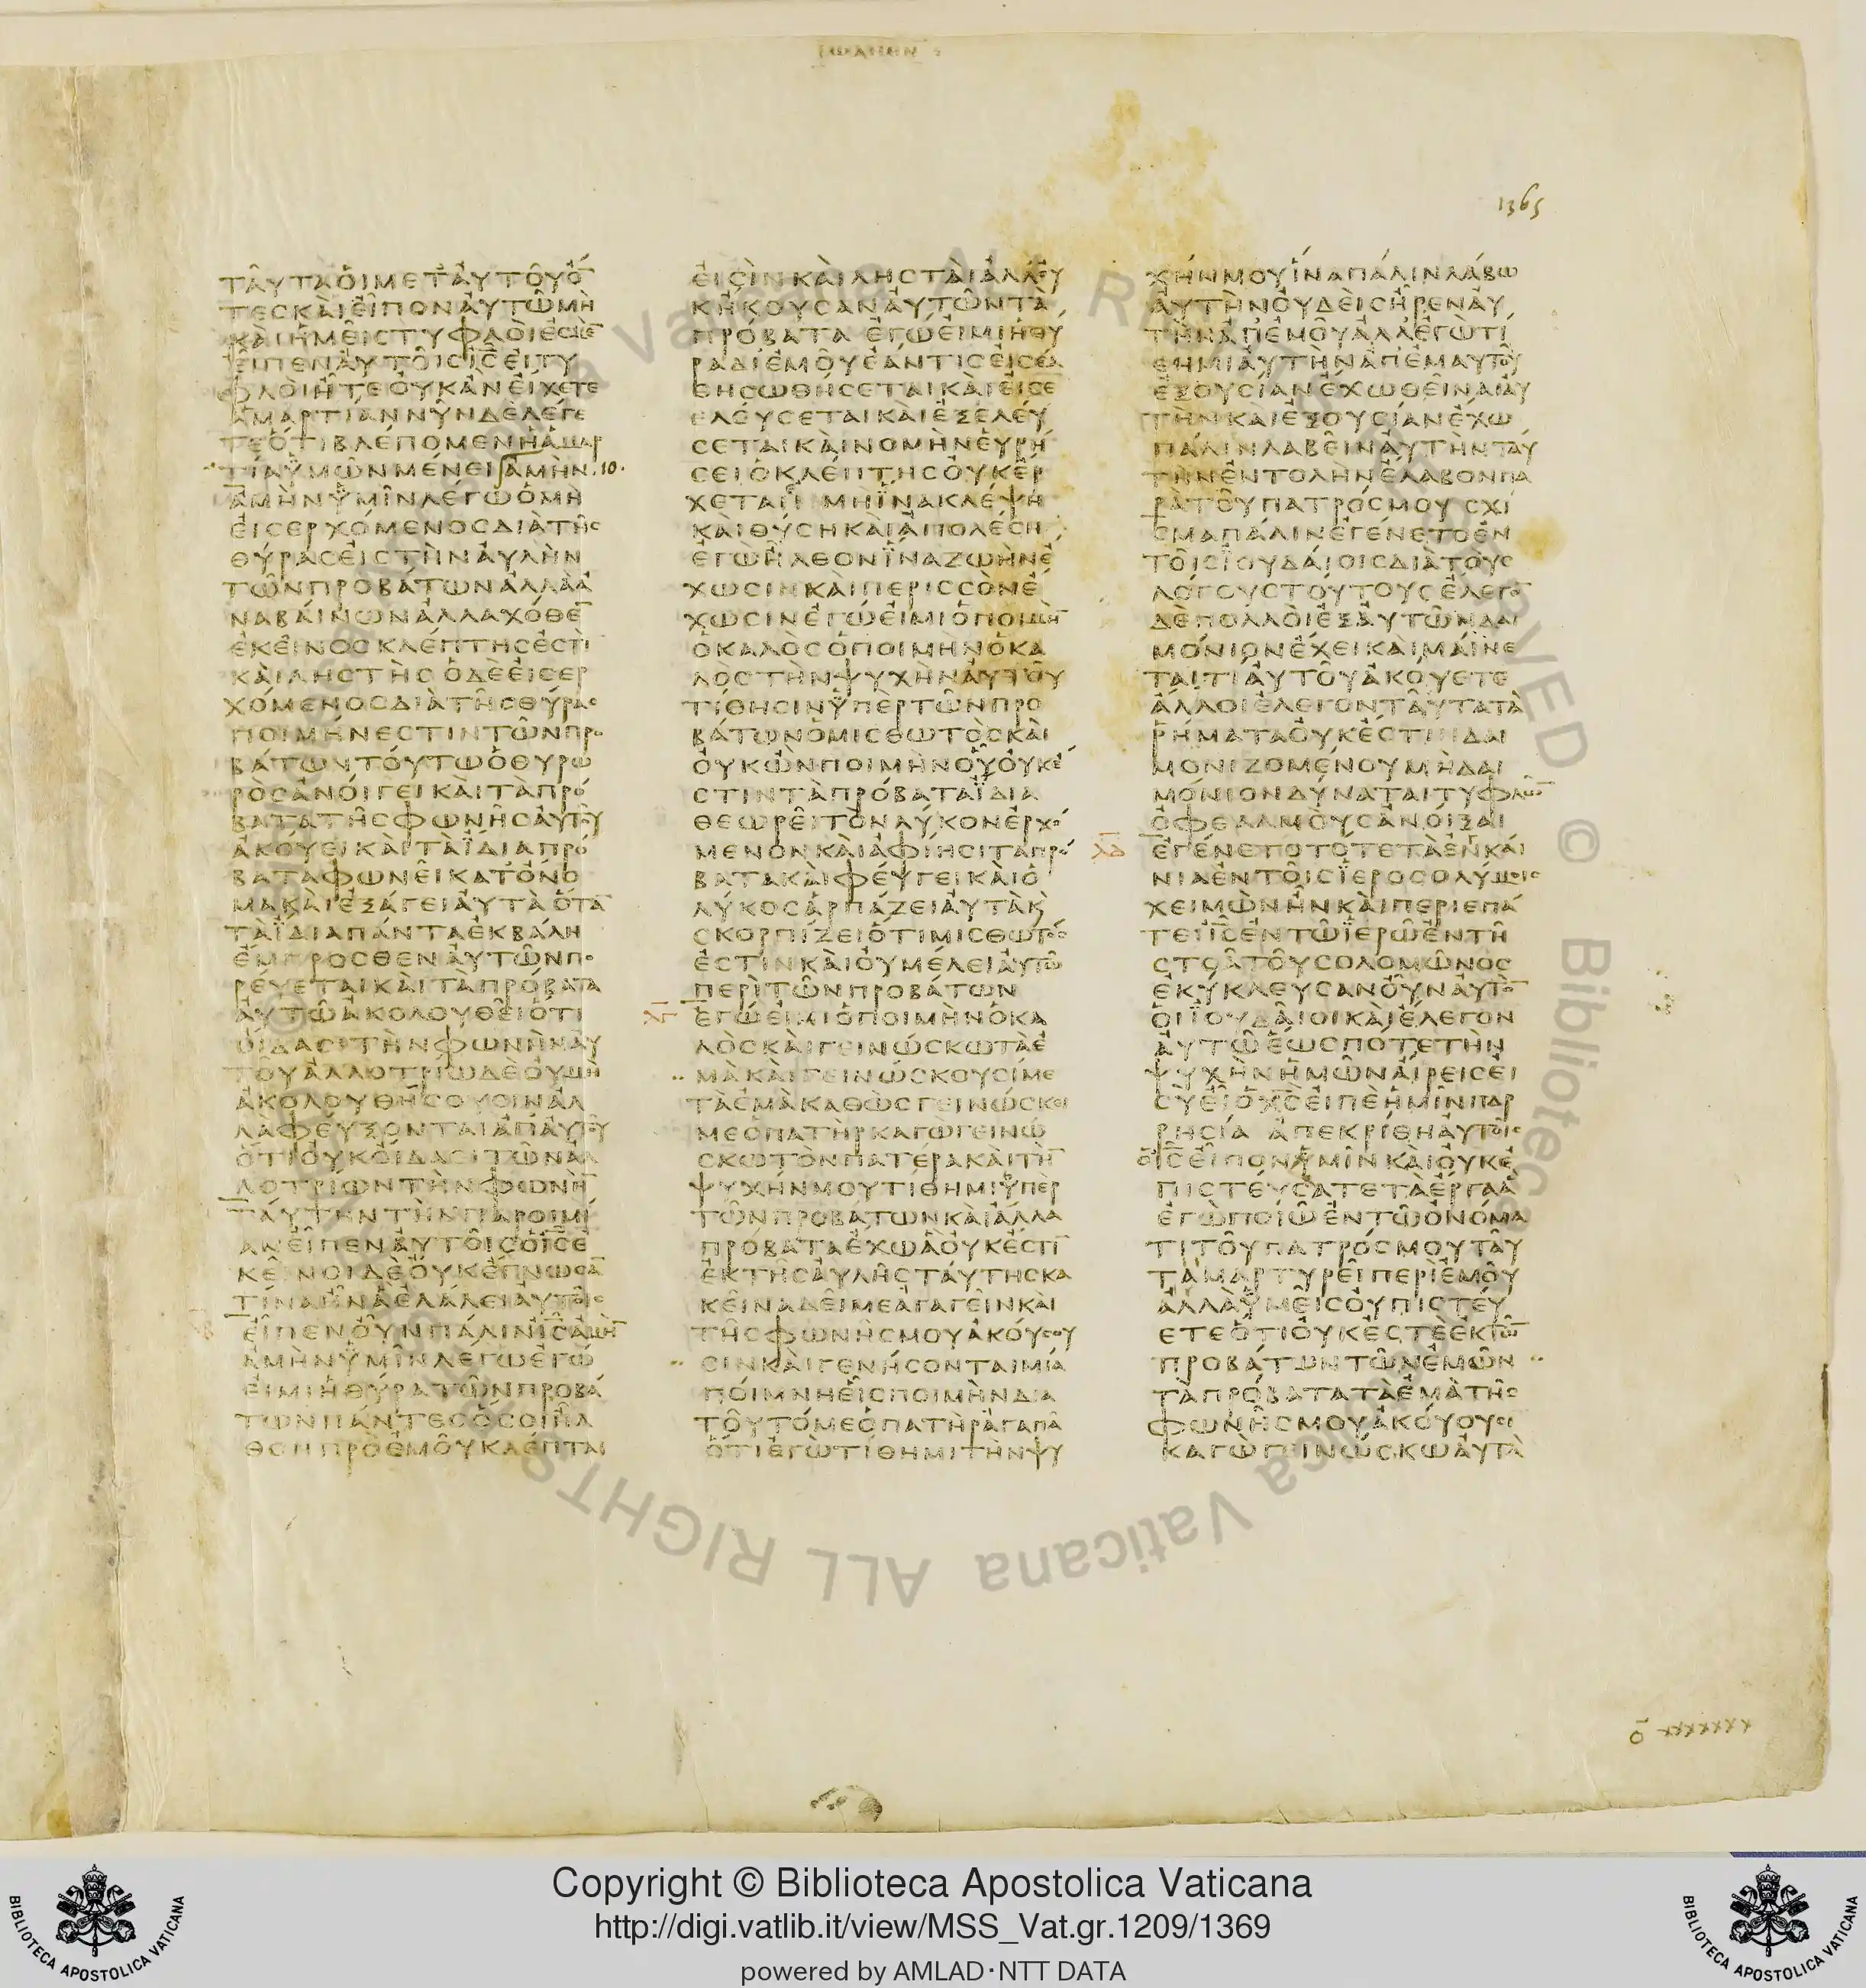 ΙΩΑΝΗΝ
1365
ΤΑΥΤΑΟΙΜΕΤΑΥΤΟΥΟ̅
ΤΕΣΚΑΙΕΙΠΟΝΑΥΤΩΜΗ
ΚΑΙΗΜΕΙΣΤΥΦΛΟΙΕΣΜΕ̅
ΕΙΠΕΝΑΥΤΟΙΣΙ̅Σ̅ΕΙΤΥ
ΦΛΟΙΗΤΕΟΥΚΑΝΕΙΧΕΤΕ
ΑΜΑΡΤΙΑΝΝΥΝΔΕΛΕΓΕ
ΤΕΟΤΙΒΛΕΠΟΜΕΝΗΑΜΑΡ
ΤΙΑΫΜΩΝΜΕΝΕΙΑΜΗΝ·10·
ΑΜΗΝΫΜΙΝΛΕΓΩΟΜΗ
ΕΙΣΕΡΧΟΜΕΝΟΣΔΙΑΤΗΣ
ΘΥΡΑΣΕΙΣΤΗΝΑΥΛΗΝ
ΤΩΝΠΡΟΒΑΤΩΝΑΛΛΑΑ
ΝΑΒΑΙΝΩΝΑΛΛΑΧΟΘΕ̅
ΕΚΕΙΝΟΣΚΛΕΠΤΗΣΕΣΤΙ
ΚΑΙΛΗΣΤΗΣΟΔΕΕΙΣΕΡ
ΧΟΜΕΝΟΣΔΙΑΤΗΣΘΥΡΑΣ
ΠΟΙΜΗΝΕΣΤΙΝΤΩΝΠΡΟ
ΒΑΤΩΝΤΟΥΤΩΟΘΥΡΩ
ΡΟΣΑΝΟΙΓΕΙΚΑΙΤΑΠΡΟ
ΒΑΤΑΤΗΣΦΩΝΗΣΑΥΤΟΥ
ΑΚΟΥΕΙΚΑΙΤΑΪΔΙΑΠΡΟ
ΒΑΤΑΦΩΝΕΙΚΑΤΟΝΟ
ΜΑΚΑΙΕΞΑΓΕΙΑΥΤΑΟΤΑ̅
ΤΑΪΔΙΑΠΑΝΤΑΕΚΒΑΛΗ
ΕΜΠΡΟΣΘΕΝΑΥΤΩΝΠΟ
ΡΕΥΕΤΑΙΚΑΙΤΑΠΡΟΒΑΤΑ
ΑΥΤΩΑΚΟΛΟΥΘΕΙΟΤΙ
ΟΙΔΑΣΙΤΗΝΦΩΝΗΝΑΥ
ΤΟΥΑΛΛΟΤΡΙΩΔΕΟΥΜΗ
ΑΚΟΛΟΥΘΗΣΟΥΣΙΝΑΛ
ΛΑΦΕΥΞΟΝΤΑΙΑΠΑΥΤΟΥ
ΟΤΙΟΥΚΟΙΔΑΣΙΤΩΝΑΛ
ΛΟΤΡΙΩΝΤΗΝΦΩΝΗ̅
ΤΑΥΤΗΝΤΗΝΠΑΡΟΙΜΙ
ΑΝΕΙΠΕΝΑΥΤΟΙΣΟΙ̅Σ̅Ε
ΚΕΙΝΟΙΔΕΟΥΚΕΓΝΩΣΑ̅
ΤΙΝΑΗΝΑΕΛΑΛΕΙΑΥΤΟΙΣ
ΕΙΠΕΝΟΥΝΠΑΛΙΝΙ̅Σ̅ΑΜΗ̅
ΑΜΗΝΫΜΙΝΛΕΓΩΕΓΩ
ΕΙΜΙΗΘΥΡΑΤΩΝΠΡΟΒΑ
ΤΩΝΠΑΝΤΕΣΟΣΟΙΗΛ
ΘΟΝΠΡΟΕΜΟΥΚΛΕΠΤΑΙ
ΕΙΣΙΝΚΑΙΛΗΣΤΑΙΑΛΛΟΥ
ΚΗΚΟΥΣΑΝΑΥΤΩΝΤΑ
ΠΡΟΒΑΤΑ ΕΓΩΕΙΜΙΗΘΥ
ΡΑΔΙΕΜΟΥΕΑΝΤΙΣΕΙΣΕΛ
ΘΗΣΩΘΗΣΕΤΑΙΚΑΙΕΙΣΕ
ΕΛΕΥΣΕΤΑΙΚΑΙΕΞΕΛΕΥ
ΣΕΤΑΙΚΑΙΝΟΜΗΝΕΥΡΗ
ΣΕΙΟΚΛΕΠΤΗΣΟΥΚΕΡ
ΧΕΤΑΙΕΙ ΜΗΪΝΑΚΛΕΨΗ
ΚΑΙΘΥΣΗΚΑΙΑΠΟΛΕΣΗ
ΕΓΩΗΛΘΟΝΪΝΑΖΩΗΝΕ
ΧΩΣΙΝΚΑΙΠΕΡΙΣΣΟΝΕ
ΧΩΣΙΝΕΓΩΕΙΜΙΟΠΟΙΜΗ̅
ΟΚΑΛΟΣΟΠΟΙΜΗΝΟΚΑ
ΛΟΣΤΗΝΨΥΧΗΝΑΥΤΟΥ
ΤΙΘΗΣΙΝΫΠΕΡΤΩΝΠΡΟ
ΒΑΤΩΝΟΜΙΣΘΩΤΟΣΚΑΙ
ΟΥΚΩΝΠΟΙΜΗΝΟΥΟΥΚΕ
ΣΤΙΝΤΑΠΡΟΒΑΤΑΪΔΙΑ
ΘΕΩΡΕΙΤΟΝΛΥΚΟΝΕΡΧΟ
ΜΕΝΟΝΚΑΙΑΦΙΗΣΙΤΑΠΡΟ
ΒΑΤΑΚΑΙΦΕΥΓΕΙΚΑΙΟ
ΛΥΚΟΣΑΡΠΑΖΕΙΑΥΤΑΚ
ΣΚΟΡΠΙΖΕΙΟΤΙΜΙΣΘΩΤΟΣ
ΕΣΤΙΝΚΑΙΟΥΜΕΛΕΙΑΥΤΩ
ΠΕΡΙΤΩΝΠΡΟΒΑΤΩΝ
ΛΓ ΕΓΩΕΙΜΙΟΠΟΙΜΗΝΟΚΑ
ΛΟΣΚΑΙΓΕΙΝΩΣΚΩΤΑΕ
ΜΑΚΑΙΓΕΙΝΩΣΚΟΥΣΙΜΕ
ΤΑΕΜΑΚΑΘΩΣΓΕΙΝΩΣΚΕΙ
ΜΕΟΠΑΤΗΡΚΑΓΩΓΕΙΝΩ
ΣΚΩΤΟΝΠΑΤΕΡΑΚΑΙΤΗ̅
ΨΥΧΗΝΜΟΥΤΙΘΗΜΙΫΠΕΡ
ΤΩΝΠΡΟΒΑΤΩΝΚΑΙΑΛΛΑ
ΠΡΟΒΑΤΑΕΧΩΑΟΥΚΕΣΤΙ̅
ΕΚΤΗΣΑΥΛΗΣΤΑΥΤΗΣΚΑ
ΚΕΙΝΑΔΕΙΜΕΑΓΑΓΕΙΝΚΑΙ
ΤΗΣΦΩΝΗΣΜΟΥΑΚΟΥΣΟΥ
ΣΙΝΚΑΙΓΕΝΗΣΟΝΤΑΙΜΙΑ
ΠΟΙΜΝΗΕΙΣΠΟΙΜΗΝΔΙΑ
ΤΟΥΤΟΜΕΟΠΑΤΗΡΑΓΑΠΑ
ΟΤΙΕΓΩΤΙΘΗΜΙΤΗΝΨΥ
ΧΗΝΜΟΥΪΝΑΠΑΛΙΝΛΑΒΩ
ΑΥΤΗΝΟΥΔΕΙΣΗΡΕΝΑΥ
ΤΗΝΑΠΕΜΟΥΑΛΛΕΓΩΤΙ
ΘΗΜΙΑΥΤΗΝΑΠΕΜΑΥΤΟΥ
ΕΞΟΥΣΙΑΝΕΧΩΘΕΙΝΑΙΑΥ
ΤΗΝΚΑΙΕΞΟΥΣΙΑΝΕΧΩ
ΠΑΛΙΝΛΑΒΕΙΝΑΥΤΗΝΤΑΥ
ΤΗΝΕΝΤΟΛΗΝΕΛΑΒΟΝΠΑ
ΡΑΤΟΥΠΑΤΡΟΣΜΟΥ ΣΧΙ
ΣΜΑΠΑΛΙΝΕΓΕΝΕΤΟΕΝ
ΤΟΙΣΪΟΥΔΑΙΟΙΣΔΙΑΤΟΥΣ
ΛΟΓΟΥΣΤΟΥΤΟΥΣΕΛΕΓΟ̅
ΔΕΠΟΛΛΟΙΕΞΑΥΤΩΝΔΑΙ
ΜΟΝΙΟΝΕΧΕΙΚΑΙΜΑΙΝΕ
ΤΑΙΤΙΑΥΤΟΥΑΚΟΥΕΤΕ
ΑΛΛΟΙΕΛΕΓΟΝΤΑΥΤΑΤΑ
ΡΗΜΑΤΑΟΥΚΕΣΤΙΝΔΑΙ
ΜΟΝΙΖΟΜΕΝΟΥΜΗΔΑΙ
ΜΟΝΙΟΝΔΥΝΑΤΑΙΤΥΦΛΩ̅
ΟΦΘΑΛΜΟΥΣΑΝΟΙΞΑΙ
ΛΔ ΕΓΕΝΕΤΟΤΟΤΕΤΑΕΝΚΑΙ
ΝΙΑΕΝΤΟΙΣΪΕΡΟΣΟΛΥΜΟΙΣ
ΧΕΙΜΩΝΗΝΚΑΙΠΕΡΙΕΠΑ
ΤΕΙΙ̅Σ̅ΕΝΤΩΪΕΡΩΕΝΤΗ
ΣΤΟΑΤΟΥΣΟΛΟΜΩΝΟΣ
ΕΚΥΚΛΕΥΣΑΝΟΥΝΑΥΤΟ̅
ΟΙΪΟΥΔΑΙΟΙΚΑΙΕΛΕΓΟΝ
ΑΥΤΩΕΩΣΠΟΤΕΤΗΝ
ΨΥΧΗΝΗΜΩΝΑΙΡΕΙΣΕΙ
ΣΥΕΙΟΧ̅Σ̅ΕΙΠΕΗΜΙΝΠΑΡ
ΡΗΣΙΑ ΑΠΕΚΡΙΘΗΑΥΤΟΙΣ
ΟΙ̅Σ̅ΕΙΠΟΝΥΜΙΝΚΑΙΟΥΚΕ
ΠΙΣΤΕΥΣΑΤΕΤΑΕΡΓΑΑ
ΕΓΩΠΟΙΩΕΝΤΩΟΝΟΜΑ
ΤΙΤΟΥΠΑΤΡΟΣΜΟΥΤΑΥ
ΤΑΜΑΡΤΥΡΕΙΠΕΡΙΕΜΟΥ
ΑΛΛΑΫΜΕΙΣΟΥΠΙΣΤΕΥ
ΕΤΕΟΤΙΟΥΚΕΣΤΕΕΚΤΩ̅
ΠΡΟΒΑΤΩΝΤΩΝΕΜΩΝ
ΤΑΠΡΟΒΑΤΑΤΑΕΜΑΤΗΣ
ΦΩΝΗΣΜΟΥΑΚΟΥΟΥΣΙ
ΚΑΓΩΓΕΙΝΩΣΚΩΑΥΤΑ
Copyright © Biblioteca Apostolica Vaticana
http://digi.vatlib.it/view/MSS_Vat.gr.1209/1369
powered by AMLAD·NTT DATA
BIBLIOTECA APOSTOLICA VATICANA
BIBLIOTECA APOSTOLICA VATICANA